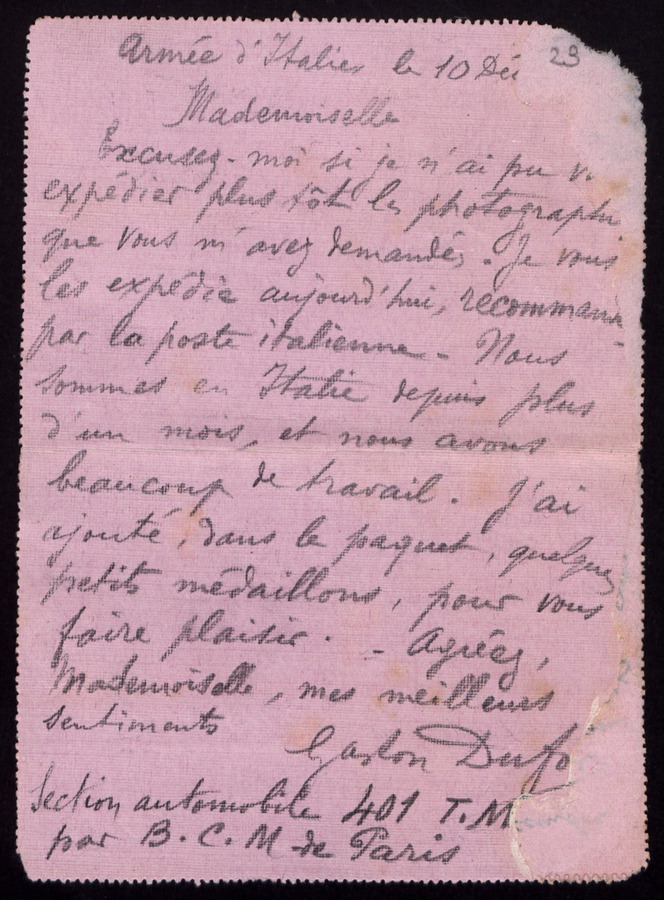 29
Armée d'Italie, le 10 Dé
Mademoiselle
Excusez-moi si je n'ai pu v
expédier plus tôt les photographi
que vous m'avez demandées. Je vous
les expédie aujourd'hui, recommand
par la poste italienne - Nous
sommes en Italie depuis plus
d'un mois, et nous avons
beaucoup de travail. J'ai
ajouté, dans le paquet, quelques
petits médaillons, pour vous
faire plaisir. - Agréez,
Mademoiselle, mes meilleurs
sentiments
Gaston Dufo
Section automobile 401 T.M
par B.C.M de Paris